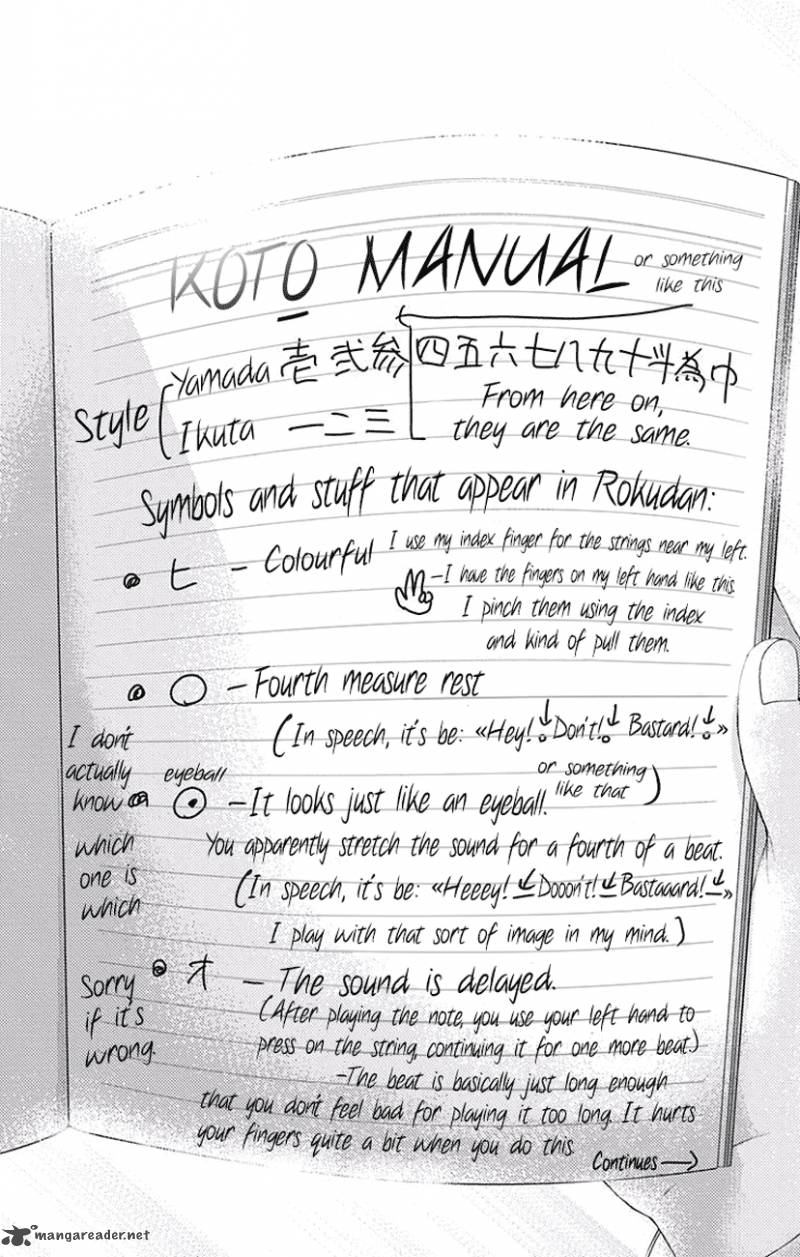 KOTO MANUAL or something
like this
Style
Yamada 壱 弐 参 四五六七八九十斗為巾
Ikuta 一二三
From here on,
they are the same.
Symbols and stuff that appear in Rokudan:
ヒ – Colourful
I use my index finger for the strings near my left.
–I have the fingers on my left hand like this.
I pinch them using the index
and kind of pull them.
○ – Fourth measure rest
(In speech, it's be: «Hey! Don't! Bastard!»
or something
like that)
I don't
actually
know
which
one is
which
eyeball
–It looks just like an eyeball.
You apparently stretch the sound for a fourth of a beat.
(In speech, it's be: «Heeey! Dooon't! Bastaaard!»
I play with that sort of image in my mind.)
Sorry
if it's
wrong.
オ – The sound is delayed.
(After playing the note, you use your left hand to
press on the string, continuing it for one more beat.)
–The beat is basically just long enough
that you don't feel bad for playing it too long. It hurts
your fingers quite a bit when you do this.
Continues→
mangareader.net